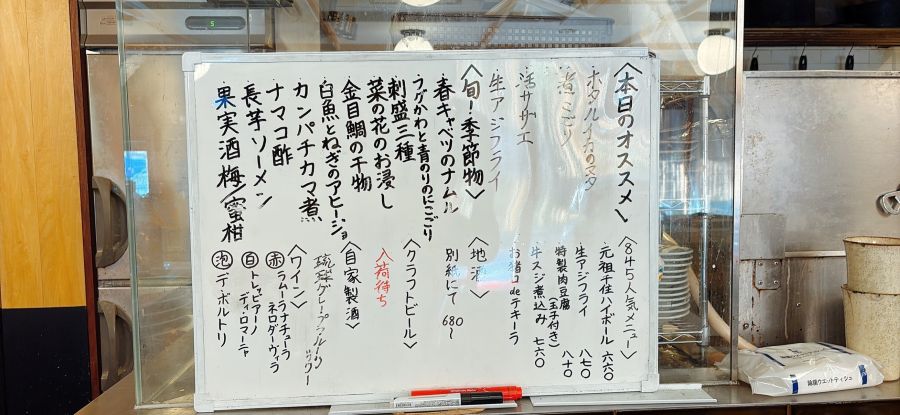 〈本日のオススメ〉
ホタルイカのヌタ
煮こごり
活サザエ
生アジフライ
〈旬！季節物〉
春キャベツのナムル
フグかわと青のりのにこごり
刺盛三種
菜の花のお浸し
金目鯛の干物
白魚とねぎのアヒージョ
カンパチカマ煮
ナマコ酢
長芋ソーメン
果実酒 梅/蜜柑
〈845人気メニュー〉
元祖千住ハイボール 六六〇
生アジフライ 八七〇
特製肉豆腐(玉子付き) 八十〇
牛スジ煮込み 七六〇
お猪口deテキーラ
〈地酒〉
別紙にて 680〜
〈クラフトビール〉
入荷待ち
〈自家製酒〉
琉球グレープフルーツ
〈ワイン〉
赤 ラムーラナチューラ
ネロダーヴィラ
白 トレッビアーノ
ディ・ロマーニャ
泡 デ・ボルトリ
除菌ウエットティシュ
5